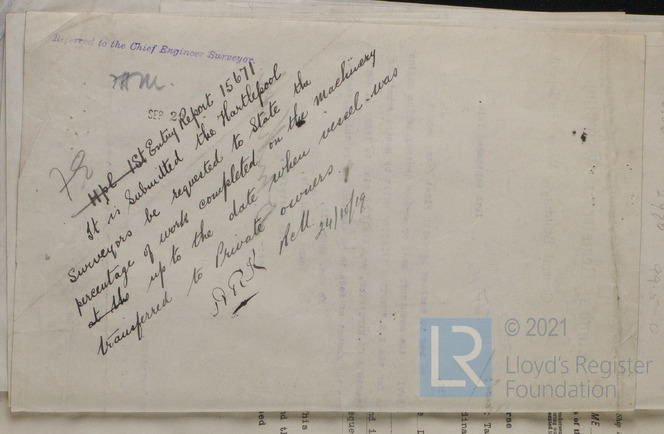 Referred to the Chief Engineer Surveyor.
SEP 2
Hpl 1st Entry Report 15671
It is submitted the Hartlepool
Surveyors be requested to State the
percentage of work completed on the machinery
at the up to the date when vessel was
transferred to Private owners.
ARK
24/10/19
© 2021
LR
Lloyd's Register
Foundation